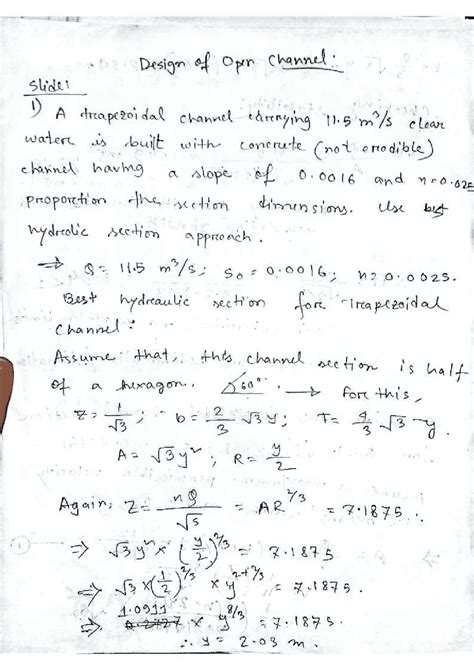 Design of Open Channel:
Slide:
1) A trapezoidal channel carrying 11.5 m³/s clear
water is built with concrete (not erodible)
channel having a slope of 0.0016 and n=0.025
proportion the section dimensions. Use best
hydrolic section approach.
⇒ Q = 11.5 m³/s; S₀ = 0.0016; n = 0.0025.
Best hydraulic section fore Trapezoidal
Channel:
Assume that, this channel section is half
of a hexagon. 60° → Fore this,
Z = 1/√3; b = 2/3 √3 y; T = 4/3 √3 y.
A = √3 y²; R = y/2
Again, Z = nQ/√s = AR^2/3 = 7.1875.
⇒ √3 y² × (y/2)^2/3 = 7.1875
⇒ √3 × (1/2)^2/3 × y^2+2/3 = 7.1875.
⇒ 1.0911 × y^8/3 = 7.1875.
∴ y = 2.03 m.